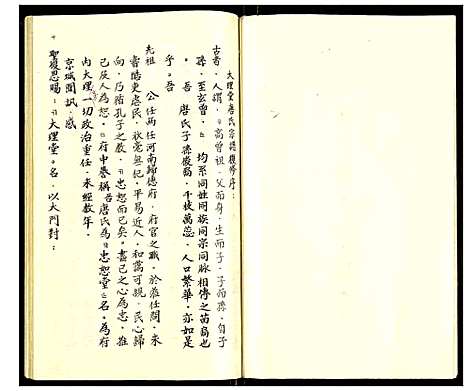 大理堂唐氏宗譜復修序：
古者，人謂，曰高曾祖，父而身，生而子，子而孫，自子
孫，至玄曾，曰均系同姓同族同宗同脉相傳之苗裔也
吾唐氏子孫發蜀，千枝萬蕊，人口繁華，亦如是
乎。吾
先祖公任兩任河南歸德府，府官之職，於蒞任問，未
嘗酷吏虐民，秋毫無犯，平易近人，和藹可親，民心歸
向，乃猶孔子之教，曰忠恕而已矣。盡己之心為忠，推
己及人為恕，曰府中眷稱吾唐氏為曰忠恕堂曰名。為府
內大理一切政治重任，未經数年。
京城聞訊，感
聖復恩賜：曰大理堂曰名，以大門封：